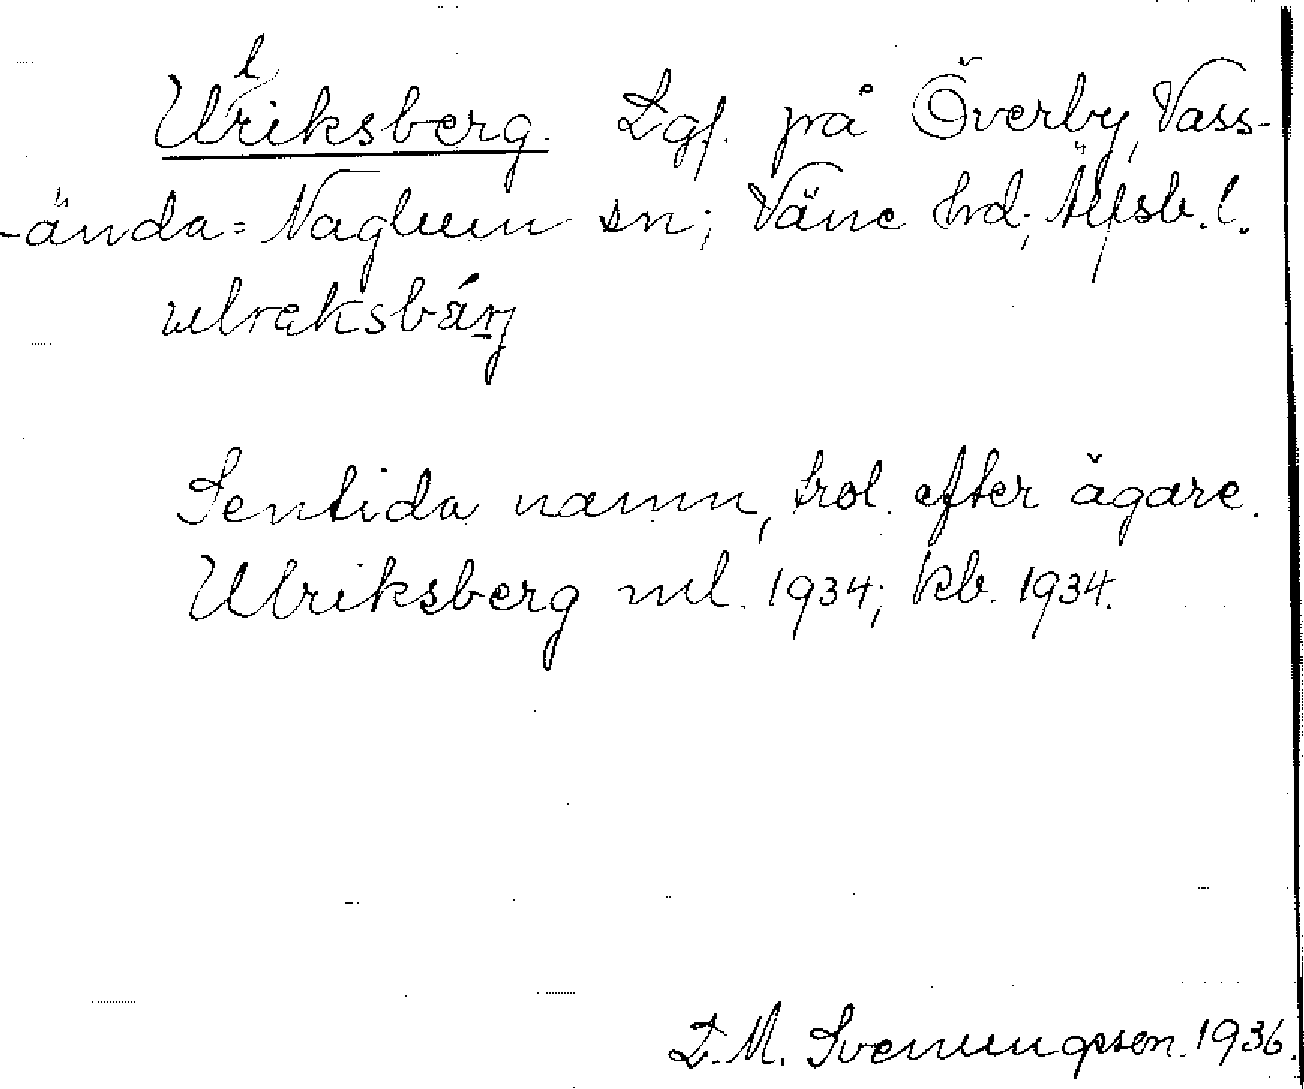 Ulriksberg. Lgf. på Överby, Vass-
-ända-Naglum sn; Väne hrd; Älfsb. l.
ulreksbärj
Sentida namn, trol. efter ägare.
Ulriksberg ml. 1934; kb. 1934.
L. M. Svenungsson. 1936.